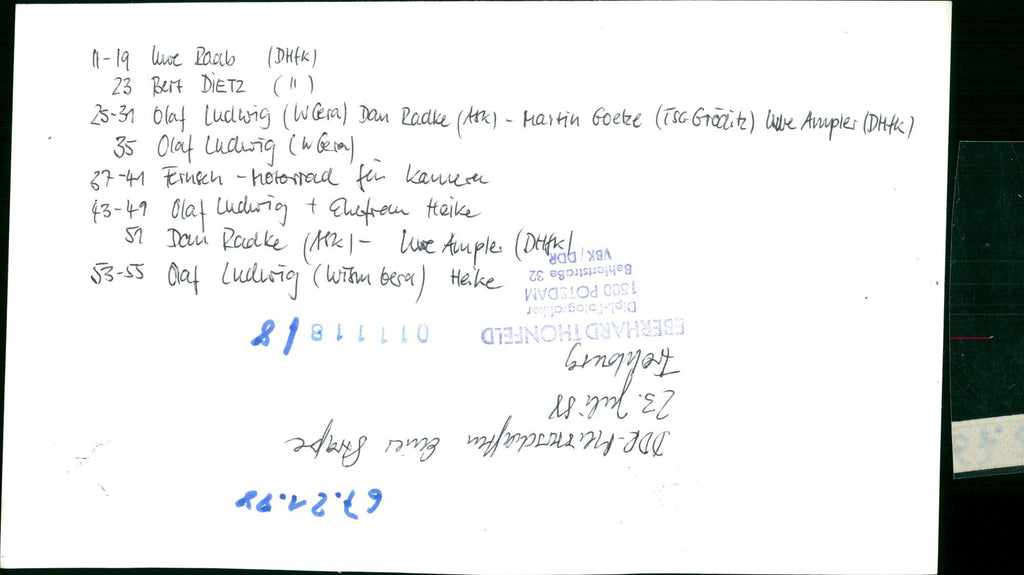 11-19 Uwe Raab (DHfK)
23 Bert DIETZ (")
25-31 Olaf Ludwig (W Gera) Dan Radke (ASK) - Martin Goetze (TSC Gröditz) Uwe Ampler (DHfK)
35 Olaf Ludwig (W Gera)
37-41 Fernseh-Motorrad für Kamera
43-49 Olaf Ludwig + Ehefrau Heike
51 Dan Radke (ASK) - Uwe Ampler (DHfK)
53-55 Olaf Ludwig (Wism Gera) Heike
EBERHARD THONFELD
Dipl.-Fotografiker
1500 POTSDAM
Bahlertstraße 32
VBK / DDR
011118/8
67.21.98
DDR-Meisterschaften Einer Straße
23. Juli 88
Frohburg